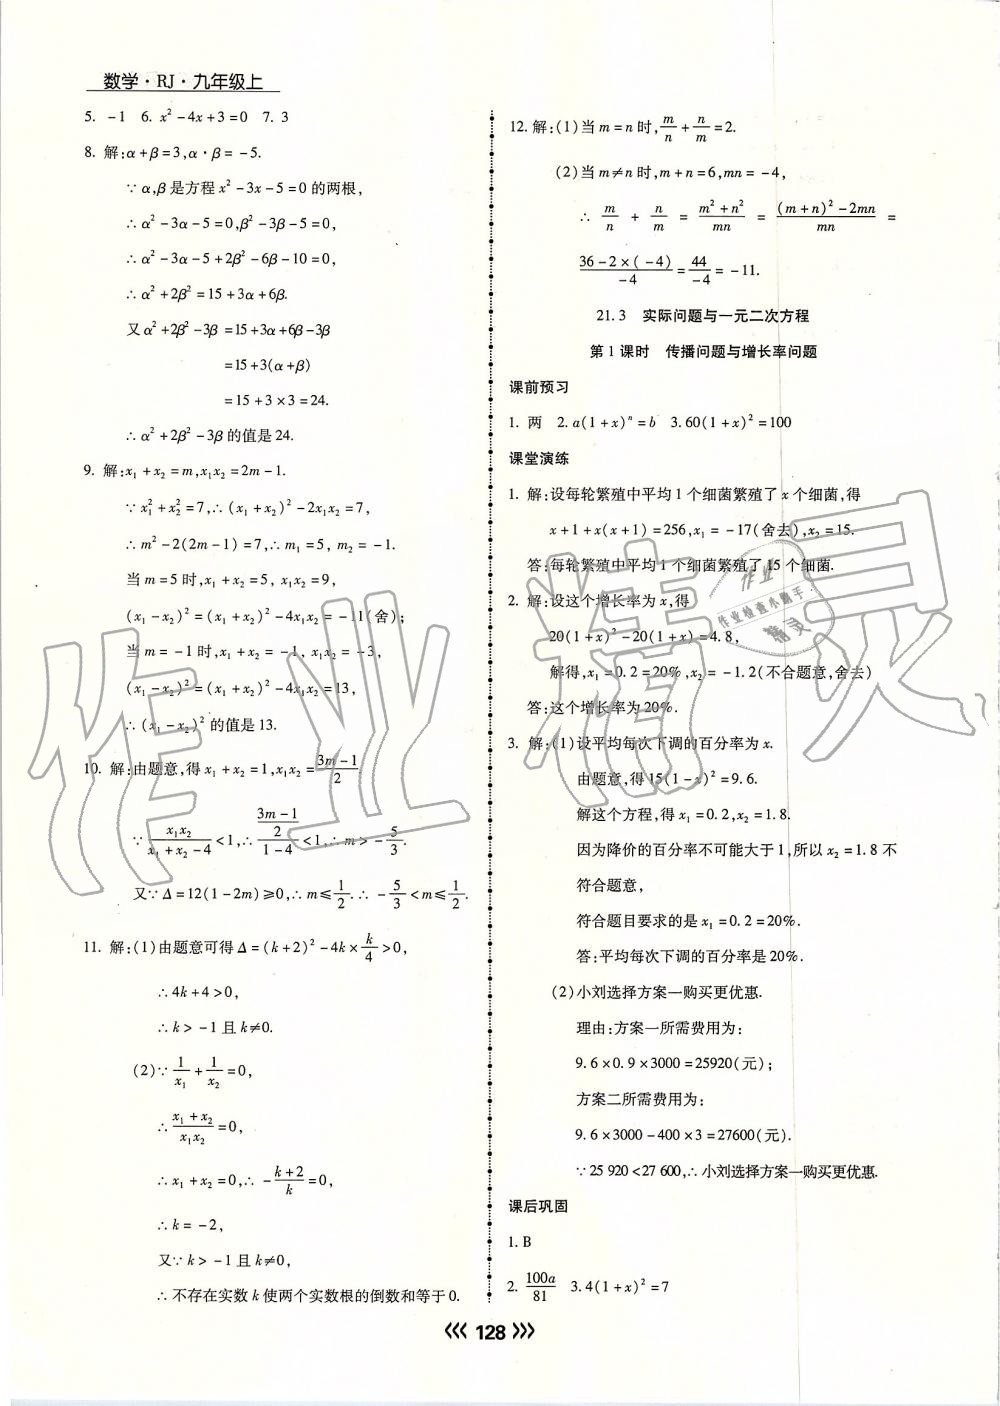 数学·RJ·九年级上
5. -1 6. x²-4x+3=0 7. 3
8. 解:α+β=3,α·β=-5.
∵α,β是方程 x²-3x-5=0 的两根,
∴α²-3α-5=0,β²-3β-5=0,
∴α²-3α-5+2β²-6β-10=0,
∴α²+2β²=15+3α+6β.
又α²+2β²-3β=15+3α+6β-3β
=15+3(α+β)
=15+3×3=24.
∴α²+2β²-3β的值是24.
9. 解:x₁+x₂=m,x₁x₂=2m-1.
∵x₁²+x₂²=7,∴(x₁+x₂)²-2x₁x₂=7,
∴m²-2(2m-1)=7,∴m₁=5, m₂=-1.
当m=5时,x₁+x₂=5, x₁x₂=9,
(x₁-x₂)²=(x₁+x₂)²-4x₁x₂=-11(舍);
当m=-1时,x₁+x₂=-1, x₁x₂=-3,
(x₁-x₂)²=(x₁+x₂)²-4x₁x₂=13,
∴(x₁-x₂)²的值是13.
10. 解:由题意,得x₁+x₂=1,x₁x₂=(3m-1)/2.
∵x₁x₂/(x₁+x₂-4)<1,∴((3m-1)/2)/(1-4)<1,∴m>-5/3.
又∵Δ=12(1-2m)≥0,∴m≤1/2.∴-5/3<m≤1/2.
11. 解:(1)由题意可得Δ=(k+2)²-4k×k/4>0,
∴4k+4>0,
∴k>-1且k≠0.
(2)∵1/x₁+1/x₂=0,
∴(x₁+x₂)/x₁x₂=0,
∴x₁+x₂=0,∴-(k+2)/k=0,
∴k=-2,
又∵k>-1且k≠0,
∴不存在实数k使两个实数根的倒数和等于0.
12. 解:(1)当m=n时,m/n+n/m=2.
(2)当m≠n时,m+n=6,mn=-4,
∴m/n+n/m=(m²+n²)/mn=((m+n)²-2mn)/mn=
(36-2×(-4))/-4=44/-4=-11.
21.3 实际问题与一元二次方程
第1课时 传播问题与增长率问题
课前预习
1. 两 2. a(1+x)ⁿ=b 3. 60(1+x)²=100
课堂演练
1. 解:设每轮繁殖中平均1个细菌繁殖了x个细菌,得
x+1+x(x+1)=256,x₁=-17(舍去),x₂=15.
答:每轮繁殖中平均1个细菌繁殖了15个细菌.
2. 解:设这个增长率为x,得
20(1+x)²-20(1+x)=4.8,
解得,x₁=0.2=20%,x₂=-1.2(不合题意,舍去)
答:这个增长率为20%.
3. 解:(1)设平均每次下调的百分率为x.
由题意,得15(1-x)²=9.6.
解这个方程,得x₁=0.2,x₂=1.8.
因为降价的百分率不可能大于1,所以x₂=1.8不
符合题意,
符合题目要求的是x₁=0.2=20%.
答:平均每次下调的百分率是20%.
(2)小刘选择方案一购买更优惠.
理由:方案一所需费用为:
9.6×0.9×3000=25920(元);
方案二所需费用为:
9.6×3000-400×3=27600(元).
∵25 920<27 600,∴小刘选择方案一购买更优惠.
课后巩固
1. B
2. 100a/81 3. 4(1+x)²=7
《《128》》
作业精灵
作业
作业检查小助手
精灵